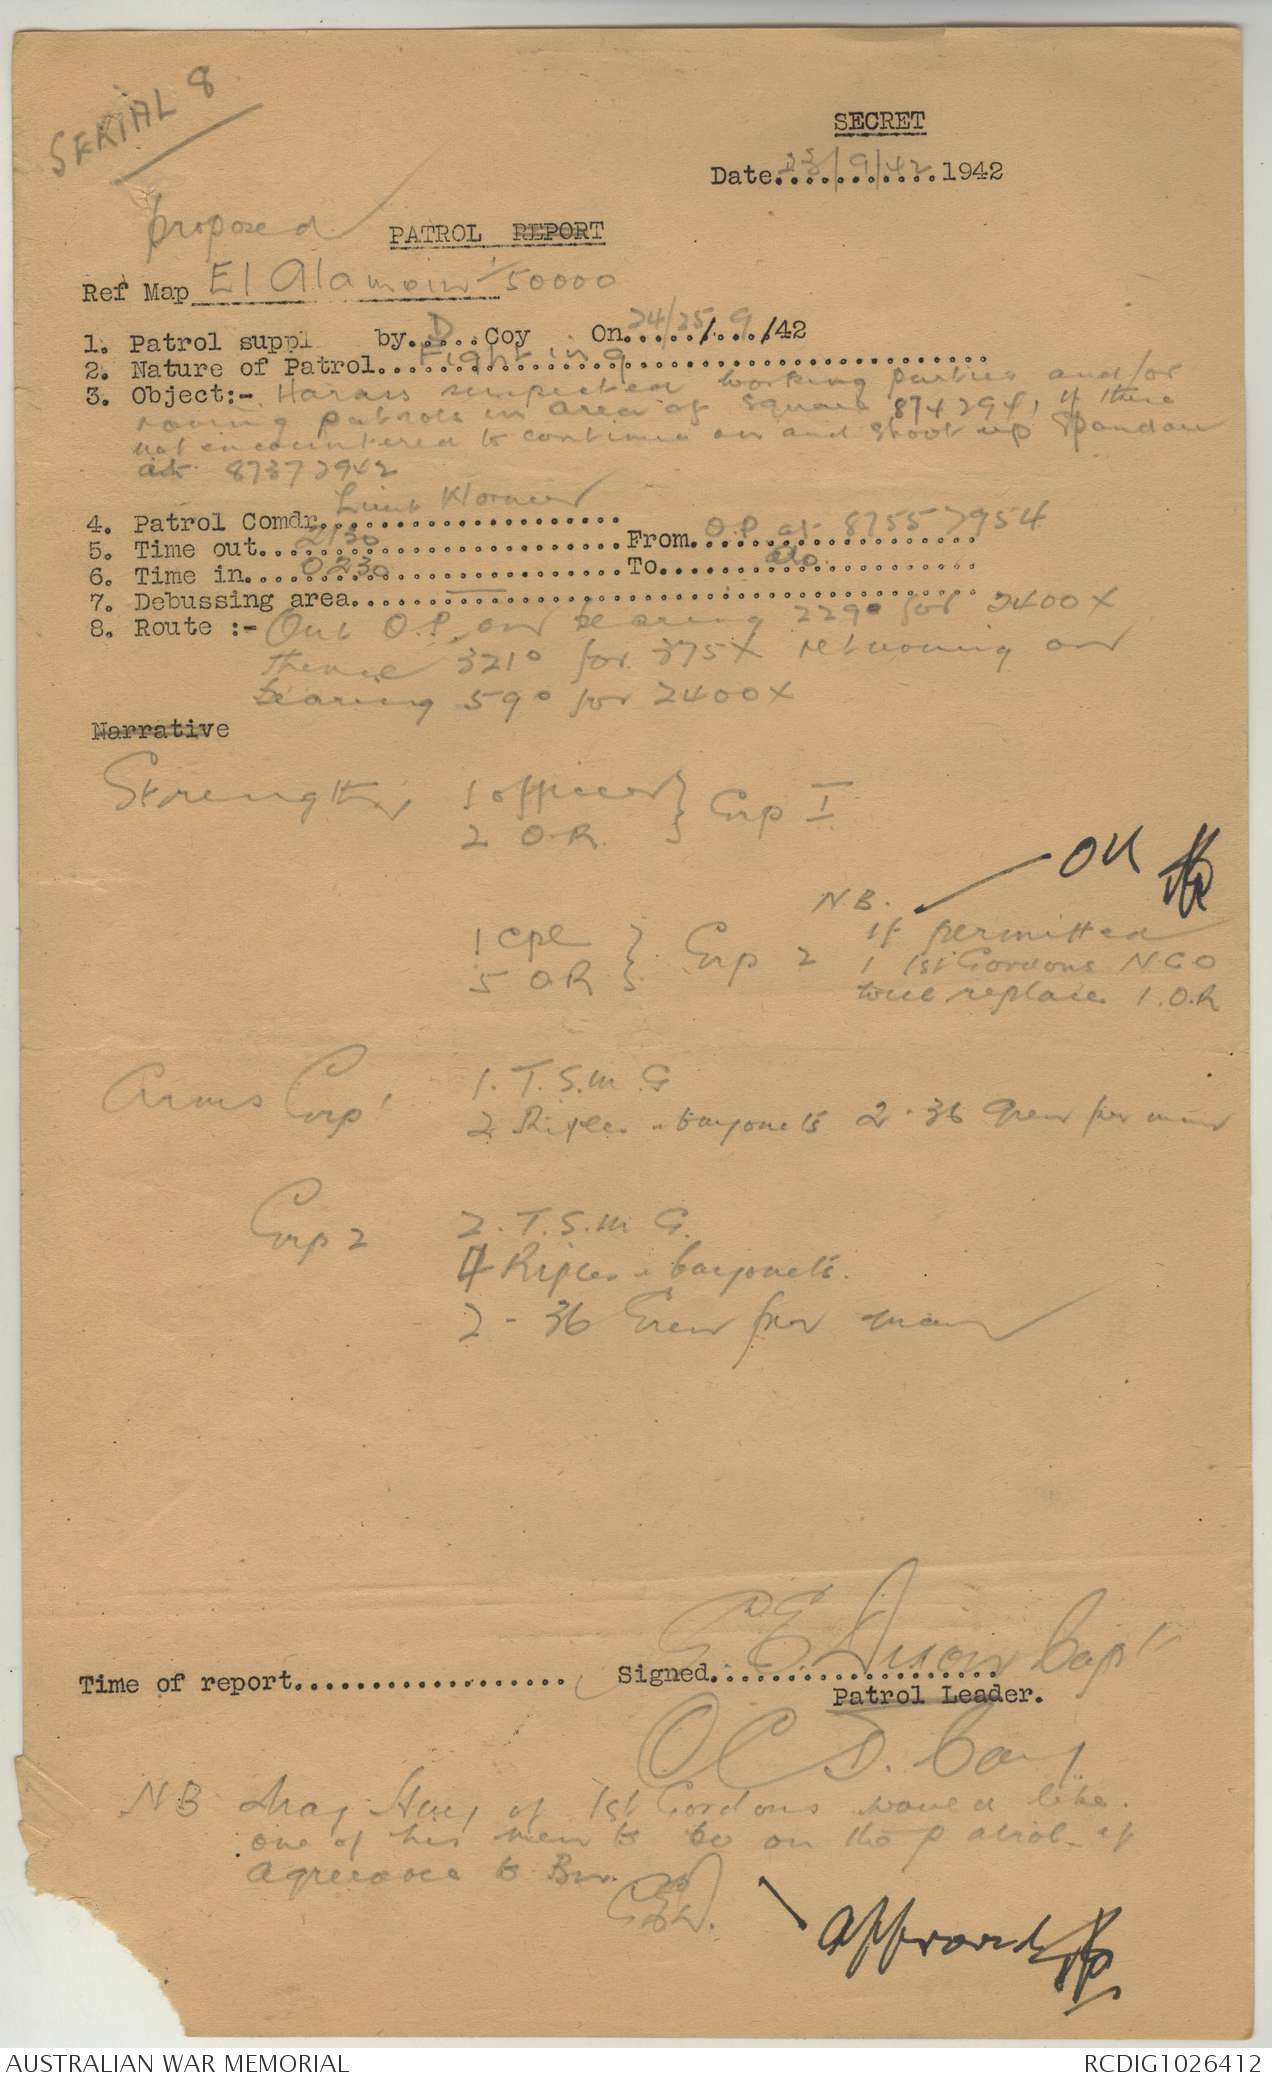 SERIAL 8
SECRET
Date 23/9/42 1942
proposed
PATROL REPORT
Ref Map El Alamein 1/50000
1. Patrol suppl by D Coy On 24/25/9/42
2. Nature of Patrol Fighting
3. Object:- Harass suspected working parties and/or
roving patrols in area of square 874294, if these
not encountered to continue on and shoot up Spandau
at 87372942
4. Patrol Comdr. Lieut
5. Time out 2130 From O.P at 87552954
6. Time in 0230 To do.
7. Debussing area —
8. Route :- Out O.P. on bearing 229° for 2400X
thence 321° for 375X returning on
bearing 59° for 2400X
Narrative
Strength, 1 officer } Grp I
2 O.R. }
OK
N.B.
1 cpl } Grp 2 if permitted
5 O.R } 1 1st Gordons NCO
will replace 1.O.R
Arms Grp 1 1. T.S.M.G
2 Rifles & bayonets 2 - 36 Gren per man
Grp 2 2. T.S.M G.
4 Rifles & bayonets.
2 - 36 Gren per man
Time of report Signed Capt
Patrol Leader.
O C D. Coy
NB Maj Hay of 1st Gordons would like.
one of his men to be on the patrol if
agreeable to Bn.
Approved
AUSTRALIAN WAR MEMORIAL
RCDIG1026412